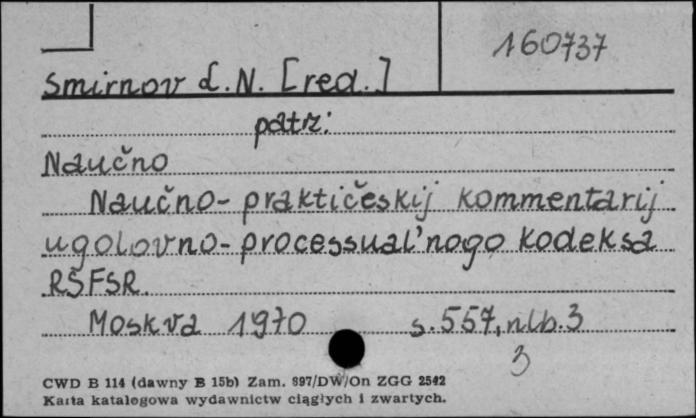 160737
Smirnov L.N. [red.]
patrz:
Naučno
Naučno-praktičeskij kommentarij
ugolovno-processual'nogo kodeksa
RSFSR.
Moskva 1970 s.557, nlb.3
3
CWD B 114 (dawny B 15b) Zam. 897/DW/On ZGG 2542
Karta katalogowa wydawnictw ciągłych i zwartych.